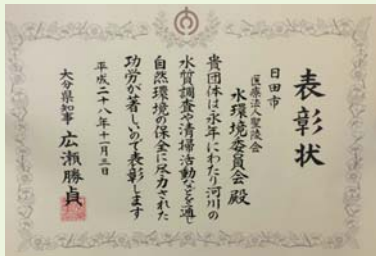 表彰状
日田市
医療法人聖陵会
水環境委員会 殿
貴団体は永年にわたり河川の
水質調査や清掃活動などを通じ
自然環境の保全に尽力された
功労が著しいので表彰します
平成二十八年十一月三日
大分県知事 広瀬勝貞